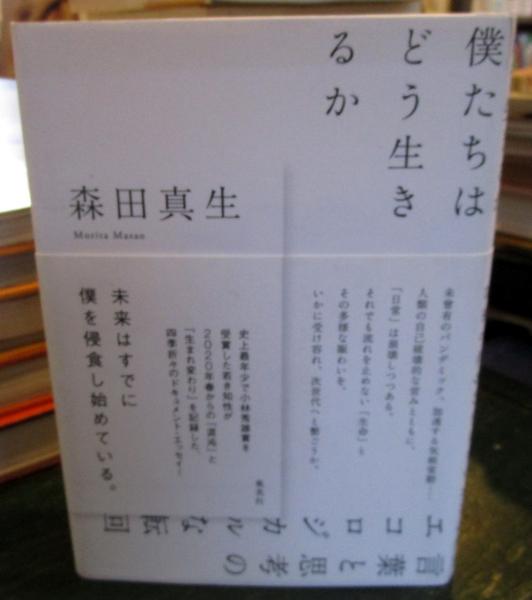 僕たちは
どう生き
るか
森田真生
Morita Masao
未曾有のパンデミック、加速する気候変動――
人類の自己破壊的な営みとともに、
「日常」は崩壊しつつある。
それでも流れを止めない「生命」と
その多様な賑わいを、
いかに受け容れ、次世代へと繋ごうか。
史上最年少で小林秀雄賞を
受賞した若き知性が
2020年春からの「混沌」と
「生まれ変わり」を記録した、
四季折々のドキュメント・エッセイ！
集英社
未来はすでに
僕を侵食し始めている。
言葉と思考の
エコロジカルな転回